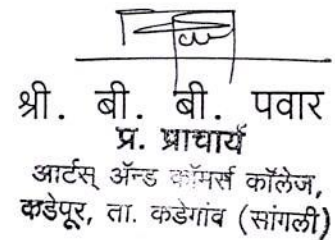 श्री. बी. बी. पवार
प्र. प्राचार्य
आर्टस् ॲन्ड कॉमर्स कॉलेज,
कडेपूर, ता. कडेगांव (सांगली)